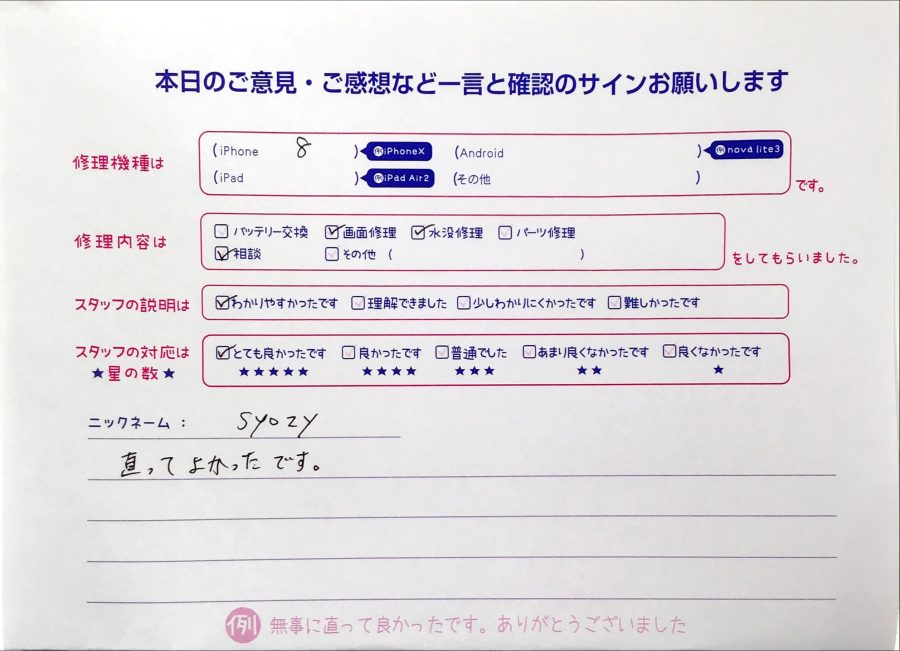 本日のご意見・ご感想など一言と確認のサインお願いします
修理機種は (iPhone 8 ) 例iPhoneX (Android ) 例nova lite3
(iPad ) 例iPad Air2 (その他 ) です。
修理内容は バッテリー交換 画面修理 水没修理 パーツ修理
相談 その他 ( ) をしてもらいました。
スタッフの説明は わかりやすかったです 理解できました 少しわかりにくかったです 難しかったです
スタッフの対応は とても良かったです 良かったです 普通でした あまり良くなかったです 良くなかったです
★星の数★ ★★★★★ ★★★★ ★★★ ★★ ★
ニックネーム： syozy
直ってよかったです。
例 無事に直って良かったです。ありがとうございました